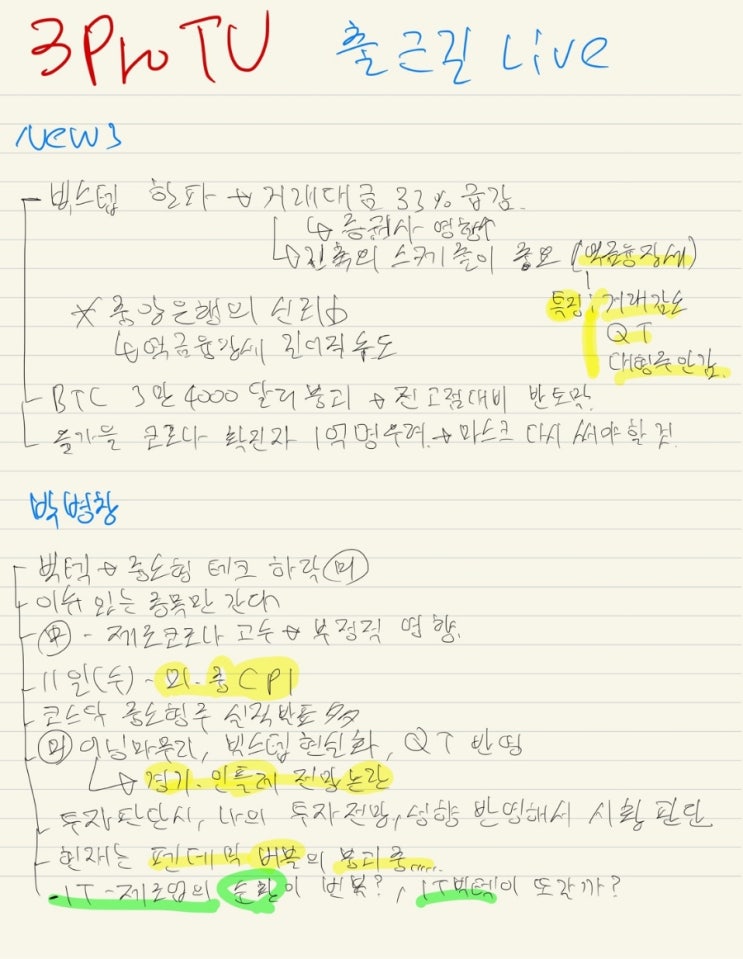 3Pro TV 출근길 Live
News
빅스텝 한파 → 거래대금 33% 급감.
↳ 증권사 영향↑
↳ 긴축의 스케줄이 중요 (역금융장세)
특징: 거래감소
QT
대형주 안감.
* 중앙은행의 신뢰↓
↳ 역금융장세 길어질수도
BTC 3만 4000 달러 붕괴 → 전고점대비 반토막.
올가을 코로나 확진자 1억명우려. → 마스크 다시 써야할 것.
박병창
빅텍 → 중소형 테크 하락 (미)
이슈 있는 종목만 간다
(中) - 제로코로나 고수 → 부정적 영향.
11일(수) - 미·중 CPI
코스닥 중소형주 실적발표
(미) 어닝마무리, 빅스텝현실화, QT 반영
↳ 경기·인플레 전망논란
투자판단시, 나의 투자전망, 성향 반영해서 시황 판단.
현재는 펜데믹 버블의 붕괴중.....
IT-제조업의 순환이 번복?, IT빅텍이 또갈까?